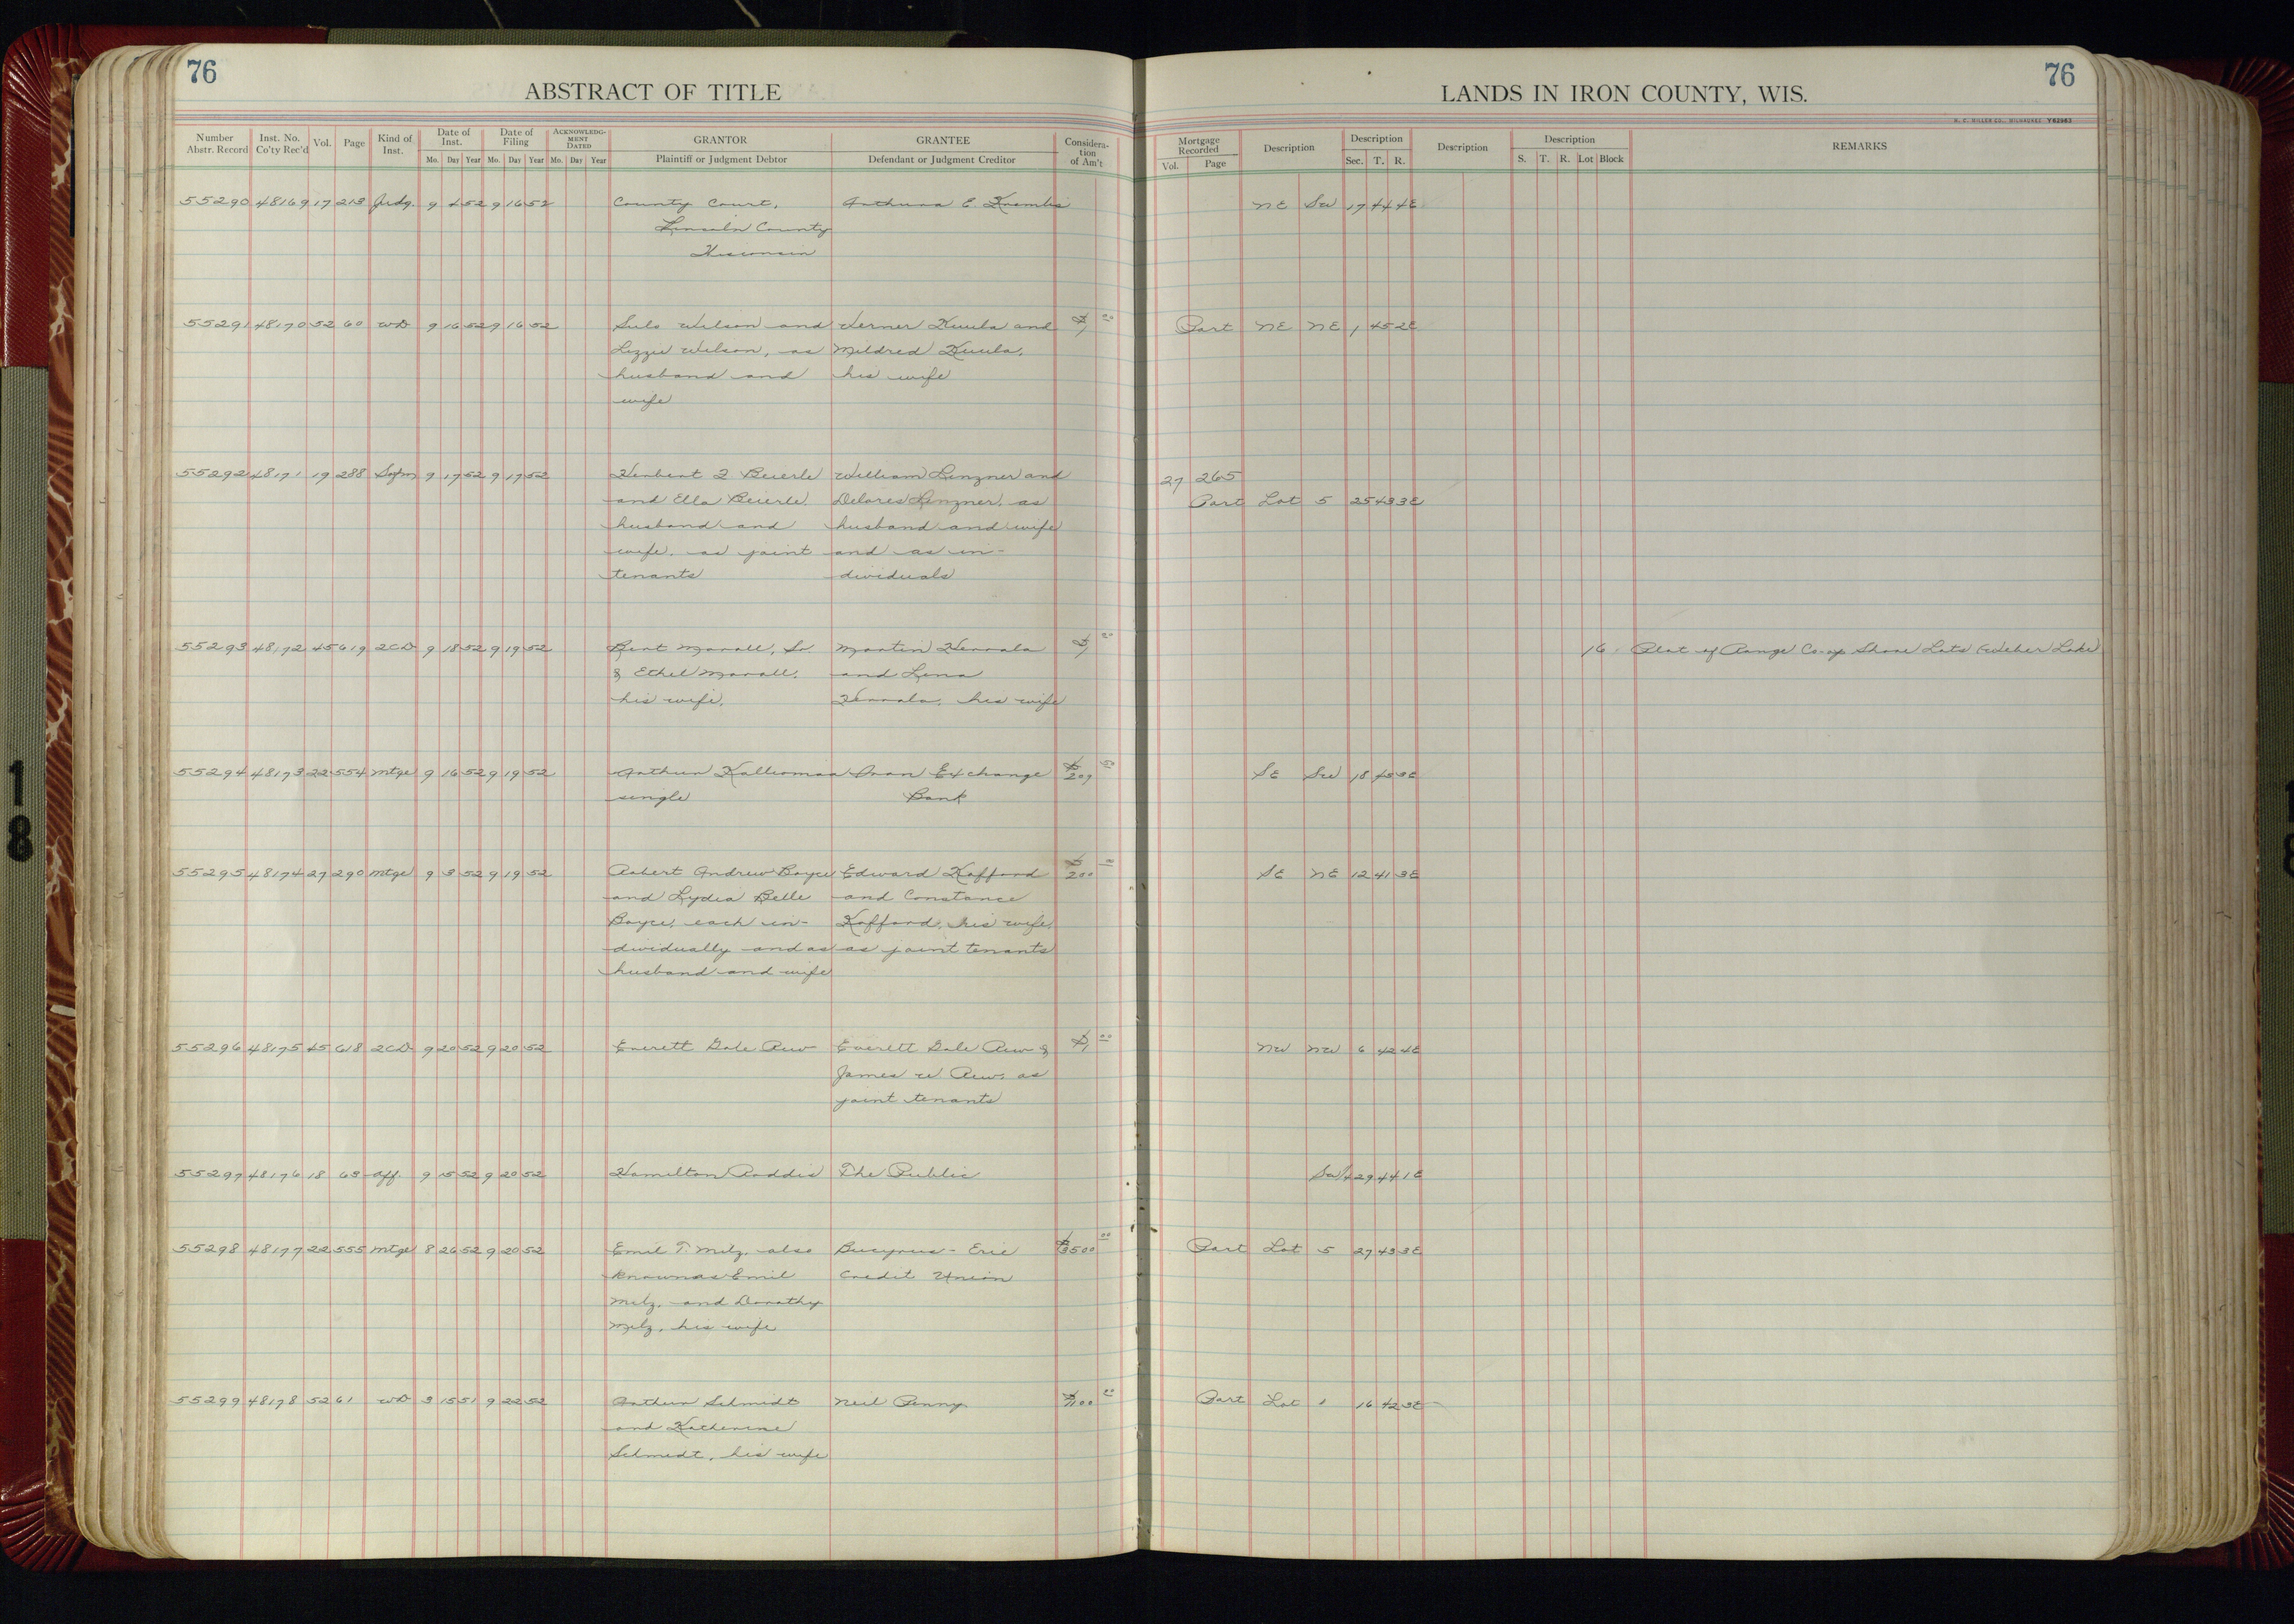 76
ABSTRACT OF TITLE
LANDS IN IRON COUNTY, WIS.
76
H. C. MILLER CO., MILWAUKEE Y62963
Number Abstr. Record Inst. No. Co'ty Rec'd Vol. Page Kind of Inst. Date of Inst. Date of Filing ACKNOWLEDGMENT DATED GRANTOR GRANTEE Consideration of Am't Mortgage Recorded Description Description Description Description REMARKS
Mo. Day Year Mo. Day Year Mo. Day Year Plaintiff or Judgment Debtor Defendant or Judgment Creditor Vol. Page Sec. T. R. S. T. R. Lot Block
55290 48169 17 213 Judg. 9 4 52 9 16 52 County Court, E. NE SW 17 44 4E
Lincoln County
Wisconsin
55291 48170 52 60 WD 9 16 52 9 16 52 Sulo Wilson and Verner Kuula and $1 00 Part NE NE 1 45 2E
Lizzie Wilson, as Mildred Kuula,
husband and his wife
wife
55292 48171 19 288 9 17 52 9 17 52 Herbert J Beierle William Linzner and 27 265
and Ella Beierle, Delores Linzner, as Part Lot 5 25 43 3E
husband and husband and wife
wife, as joint and as in-
tenants dividuals
55293 48172 45 619 2CD 9 18 52 9 19 52 Bert Marall, Sr Martin Herrala $1 00 16 Plat of Range Co-op Shore Lots (Weber Lake)
& Ethel Marall, and Lena
his wife, Herrala, his wife
55294 48173 22 554 Mtge 9 16 52 9 19 52 Arthur Kalliomaa Iron Exchange $207 50 SE SW 18 45 3E
single Bank
55295 48174 27 290 Mtge 9 3 52 9 19 52 Robert Andrew Boyce Edward Kafford $200 00 SE NE 12 41 3E
and Lydia Belle and Constance
Boyce, each in- Kafford, his wife,
dividually and as as joint tenants
husband and wife
55296 48175 45 618 2CD 9 20 52 9 20 52 Everett Gale Rew Everett Gale Rew & $1 00 NW NW 6 42 4E
James W Rew, as
joint tenants
55297 48176 18 63 Aff. 9 15 52 9 20 52 Hamilton Roddis The Public SW/4 29 44 1E
55298 48177 22 555 Mtge 8 26 52 9 20 52 Emil T. Melz, also Bucyrus-Erie $3500 00 Part Lot 5 27 43 3E
known as Emil Credit Union
Melz, and Dorothy
Melz, his wife
55299 48178 52 61 WD 3 15 51 9 22 52 Arthur Schmidt Neil Penny $1100 00 Part Lot 1 16 42 3E
and Katherine
Schmidt, his wife
18